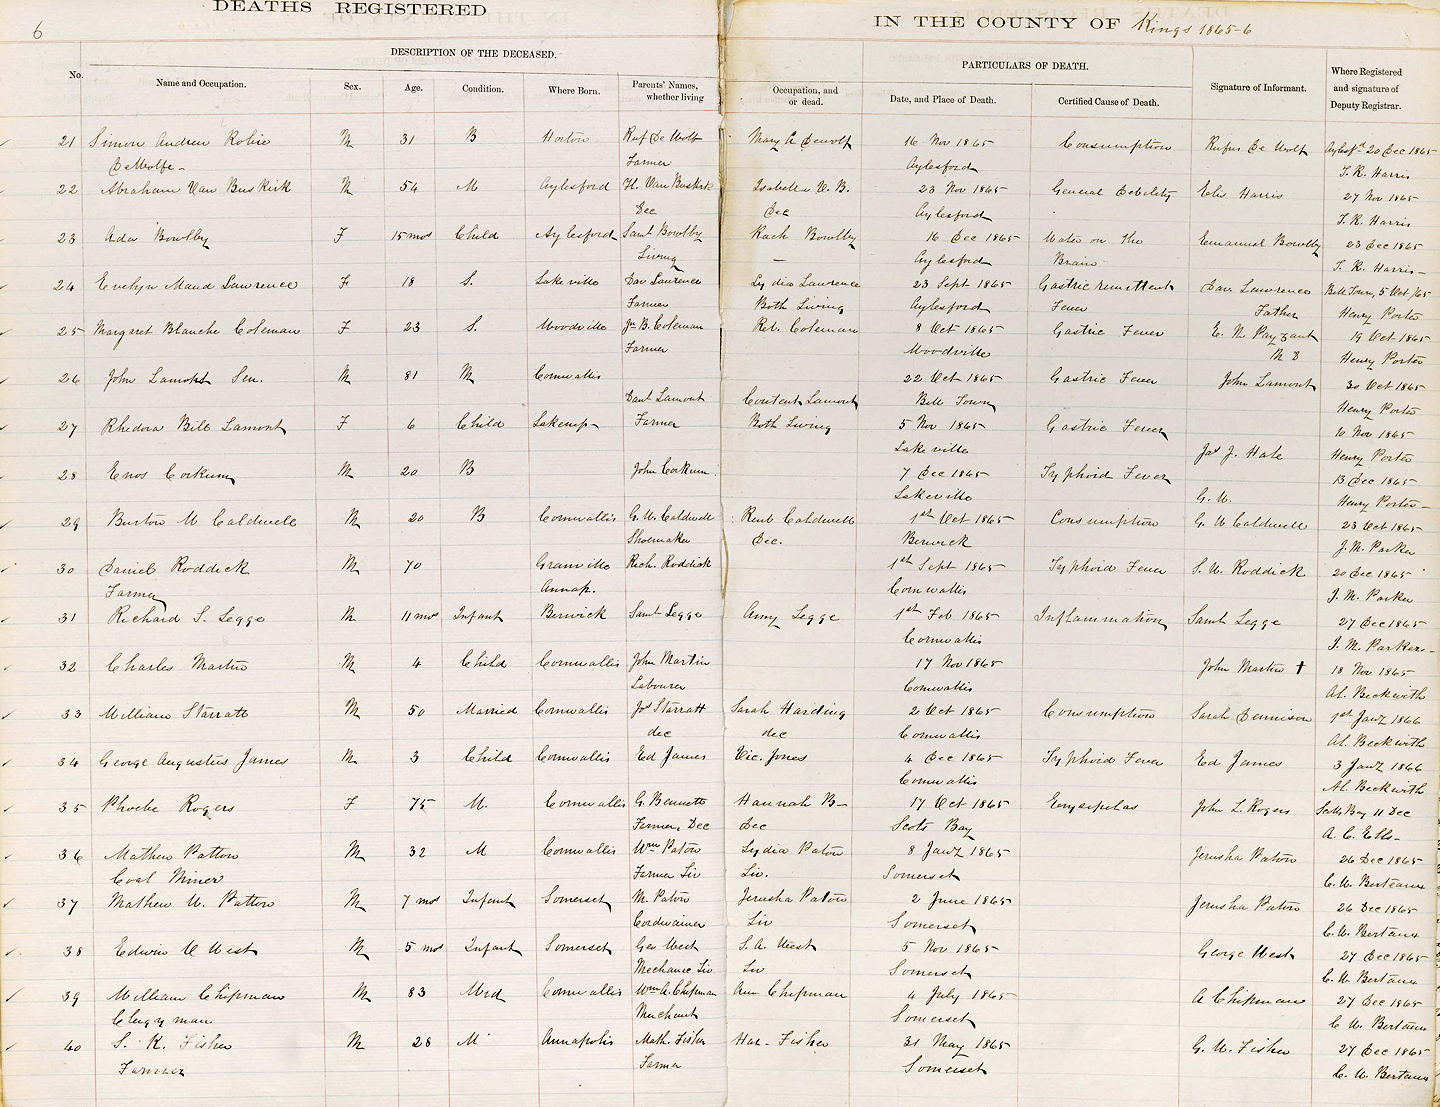 6
DEATHS REGISTERED
IN THE COUNTY OF Kings 1865-6
DESCRIPTION OF THE DECEASED.
PARTICULARS OF DEATH.
No. Name and Occupation. Sex. Age. Condition. Where Born. Parents' Names, whether living Occupation, and or dead. Date, and Place of Death. Certified Cause of Death. Signature of Informant. Where Registered and signature of Deputy Registrar.
21 Simon Andrew Robie M 31 B Horton Ruf De Wolf Mary A Dewolf 16 Nov 1865 Consumption Rufus De Wolf Aylesfd 20 Dec 1865
DeWolfe - Farmer Aylesford T. R. Harris
22 Abraham Van Buskirk M 54 M Aylesford H. Van Buskirk Isabella V. B. 23 Nov 1865 General Debility Elis Harris 27 Nov 1865
Dec Dec Aylesford T. R. Harris
23 Ada Bowlby F 15 mos Child Aylesford Saml Bowlby Rach Bowlby 16 Dec 1865 Water on the Emanuel Bowlby 23 Dec 1865
Living — Aylesford Brain T. R. Harris -
24 Evelyn Maud Lawrence F 18 S. Lakeville Dav Lawrence Lydia Lawrence 23 Sept 1865 Gastric remittent Dav. Lawrence Bill Town, 5 Oct /65
Farmer Both Living Aylesford Fever Father Henry Porter
25 Margaret Blanche Coleman F 23 S. Woodville Jn B. Coleman Reb. Coleman 8 Oct 1865 Gastric Fever E. N. Payzant 19 Oct 1865
Farmer Woodville M D Henry Porter
26 John Lamont Sen. M 81 M Cornwallis 22 Oct 1865 Gastric Fever John Lamont 30 Oct 1865
Danl Lamont Content Lamont Bill Town Henry Porter
27 Rhedora Bell Lamont F 6 Child Farmer Both Living 5 Nov 1865 Gastric Fever 10 Nov 1865
Lakeville Jas J. Hale Henry Porter
28 Enos Corkum M 20 B John Corkum 7 Dec 1865 Typhoid Fever 13 Dec 1865
Lakeville G. W. Henry Porter -
29 Burton W Caldwell M 20 B Cornwallis G. W. Caldwell Reub Caldwell 1st Oct 1865 Consumption G. W Caldwell 23 Oct 1865
Shoemaker Dec. Berwick J. M. Parker
30 Daniel Roddick M 70 Granville Rich. Roddick 1st Sept 1865 Typhoid Fever S. W. Roddick 20 Dec 1865
Farmer Annap. Cornwallis J. M. Parker
31 Richard S. Legge M 11 mos Infant Berwick Saml Legge Amy Legge 1st Feb 1865 Inflammation Saml Legge 27 Dec 1865
Cornwallis J. M. Parker -
32 Charles Martin M 4 Child Cornwallis John Martin 17 Nov 1865 John Martin † 18 Nov 1865
Labourer Cornwallis Al. Beckwith
33 William Starratt M 50 Married Cornwallis Jos Starratt Sarah Harding 2 Oct 1865 Consumption Sarah Dennison 1st Jany 1866
dec dec Cornwallis Al. Beckwith
34 George Augustus James M 3 Child Cornwallis Ed James Vic. Jones 4 Dec 1865 Typhoid Fever Ed James 3 Jany 1866
Cornwallis Al. Beckwith
35 Phoebe Rogers F 75 M. Cornwallis G. Bennett Hannah B- 17 Oct 1865 Erysipelas John L. Rogers Scotts Bay 11 Dec
Farmer, Dec Dec Scots Bay A. C. Ells -
36 Mathew Patton M 32 M Cornwallis Wm Paton Lydia Paton 8 Jany 1865 Jerusha Paton 26 Dec 1865
Coal Miner Farmer Liv Liv. Somerset C. W. Berteaux
37 Mathew W. Patton M 7 mos Infant Somerset M. Paton Jerusha Paton 2 June 1865 Jerusha Paton 26 Dec 1865
Cordwainer Liv Somerset C. W. Bertaux
38 Edwin C West M 5 mos Infant Somerset Geo West S. A. West 5 Nov 1865 George West 27 Dec 1865
Mechanic Liv Liv Somerset C. W. Bertaux
39 William Chipman M 83 Wid Cornwallis Wm A. Chipman Ann Chipman 4 July 1865 A Chipman 27 Dec 1865
Clergyman Merchant Somerset C. W. Bertaux
40 S. K. Fisher M 28 M Annapolis Math. Fisher Har- Fisher 31 May 1865 G. W. Fisher 27 Dec 1865
Farmer Farmer Somerset C. W. Bertaux